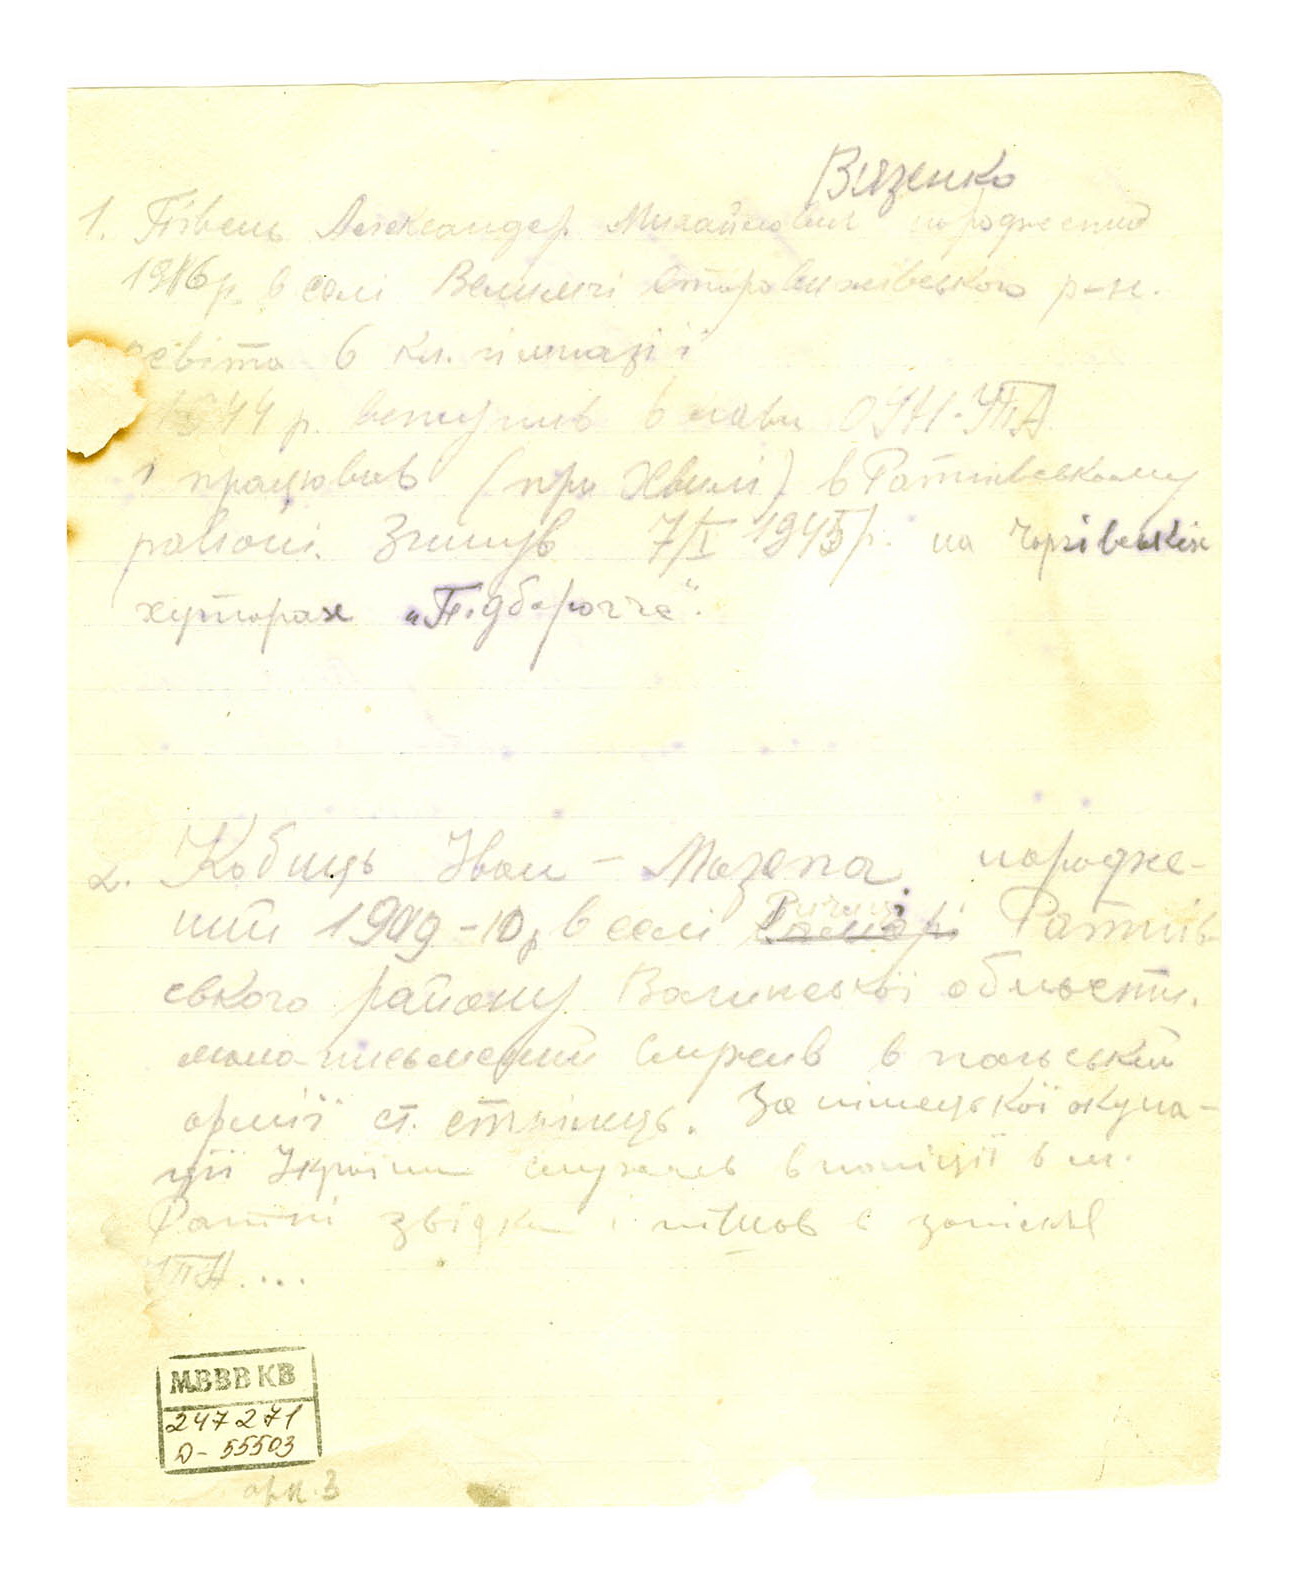 Вязенко
1. Півень Александер Михайлович народжений
1916р. в селі Велимчі Старовижівського р-н.
освіта 6 кл. гімназії
1944 р. вступив в лави ОУН-УПА
і працював (при Хвилі) в Ратнівському
районі. Згинув 7/I 1945р. на
хуторах „Підборочче".
2. Кобець Іван – Мазепа народже-
ний 1909-10р в селі Річиці Ратнів-
ського району Волинської области.
мало-письменний служив в польській
армії ст. стрілець. За німецької окупа-
ції України служив в поліції в м.
Ратні звідки і пішов в
УПА....
МВВВ КВ
247271
Д- 55503
арк. 3